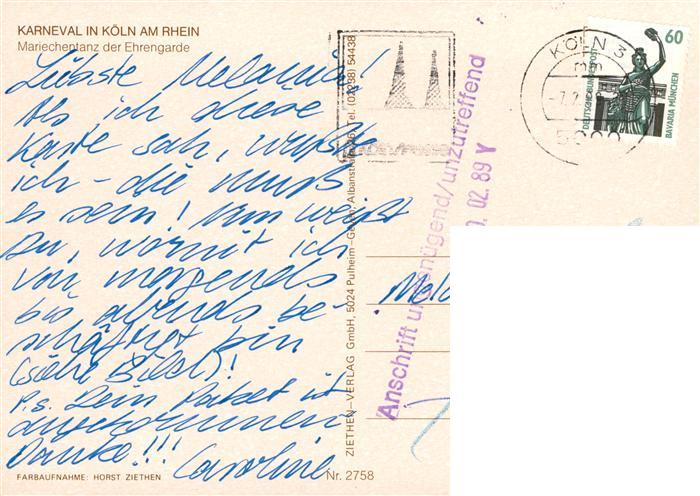 KARNEVAL IN KÖLN AM RHEIN
Mariechentanz der Ehrengarde
Liebste Melanie!
Als ich diese
Karte sah, wußte
ich - die muß
es sein! Nun weißt
Du, womit ich
von morgends
bis abends be-
schäftigt bin
(siehe Bild)!
P.s. Dein Paket ist
angekommen
Danke!!! Caroline
FARBAUFNAHME: HORST ZIETHEN
Nr. 2758
ZIETHEN-VERLAG GmbH, 5024 Pulheim-Geyen, Albanstraße Tel. (02238) 54438
Anschrift ungenügend/unzutreffend
02. 89 Y
KÖLN 3
60
DEUTSCHE BUNDESPOST
BAVARIA MÜNCHEN